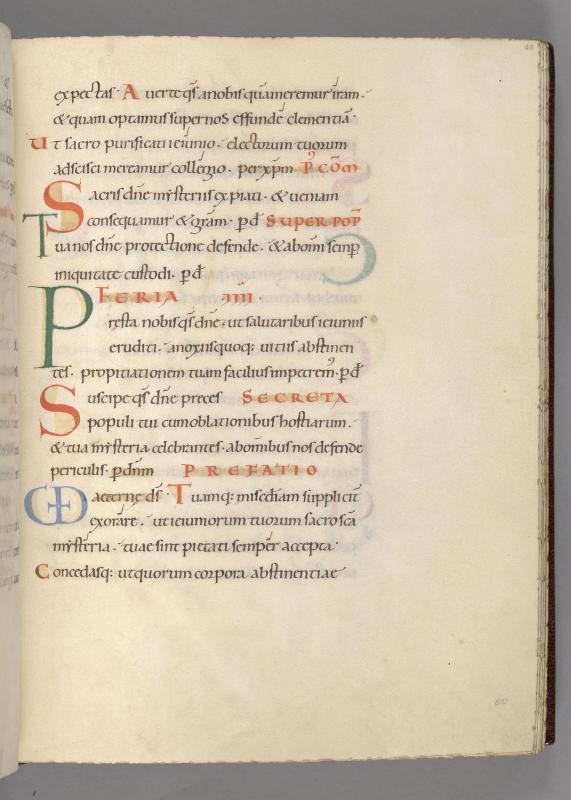 expectas · Auerte q̄s anobis quā meremur irā̄m ·
& quam optamus super nos effunde clementiā ·
Ut sacro purificati ieiunio · electorum tuorum
adscisci mereamur collegio · per xp̄m P̄ CŌM
Sacris dn̄e mysteriis expiati · & ueniam
consequamur & grā̄m · p̄ d̄ SUPER POP̄
Tua nos dn̄e protectione defende · & ab om̄i semp̄
iniquitate custodi · p̄ d̄
FERIA IIII ·
Presta nobis q̄s dn̄e · ut salutaribus ieiuniis
eruditi · anoxiis quoq; uitiis abstinen
tes · propitiationem tuam facilius impetrem᾽ · p̄ d̄
Suscipe q̄s dn̄e preces SECRETA
populi tui cum oblationibus hostiarum ·
& tua mysteria celebrantes · ab om̄ibus nos defende
periculis · p̄ dn̄m PREFATIO
UD aeterne ds̄ · Tuamq; mis̄cdiam suppliciť
exorare · ut ieiuniorum tuorum sacros̄cā
mysteria · tuae sint pietati semper accepta ·
Concedasq; ut quorum corpora abstinentiae
80